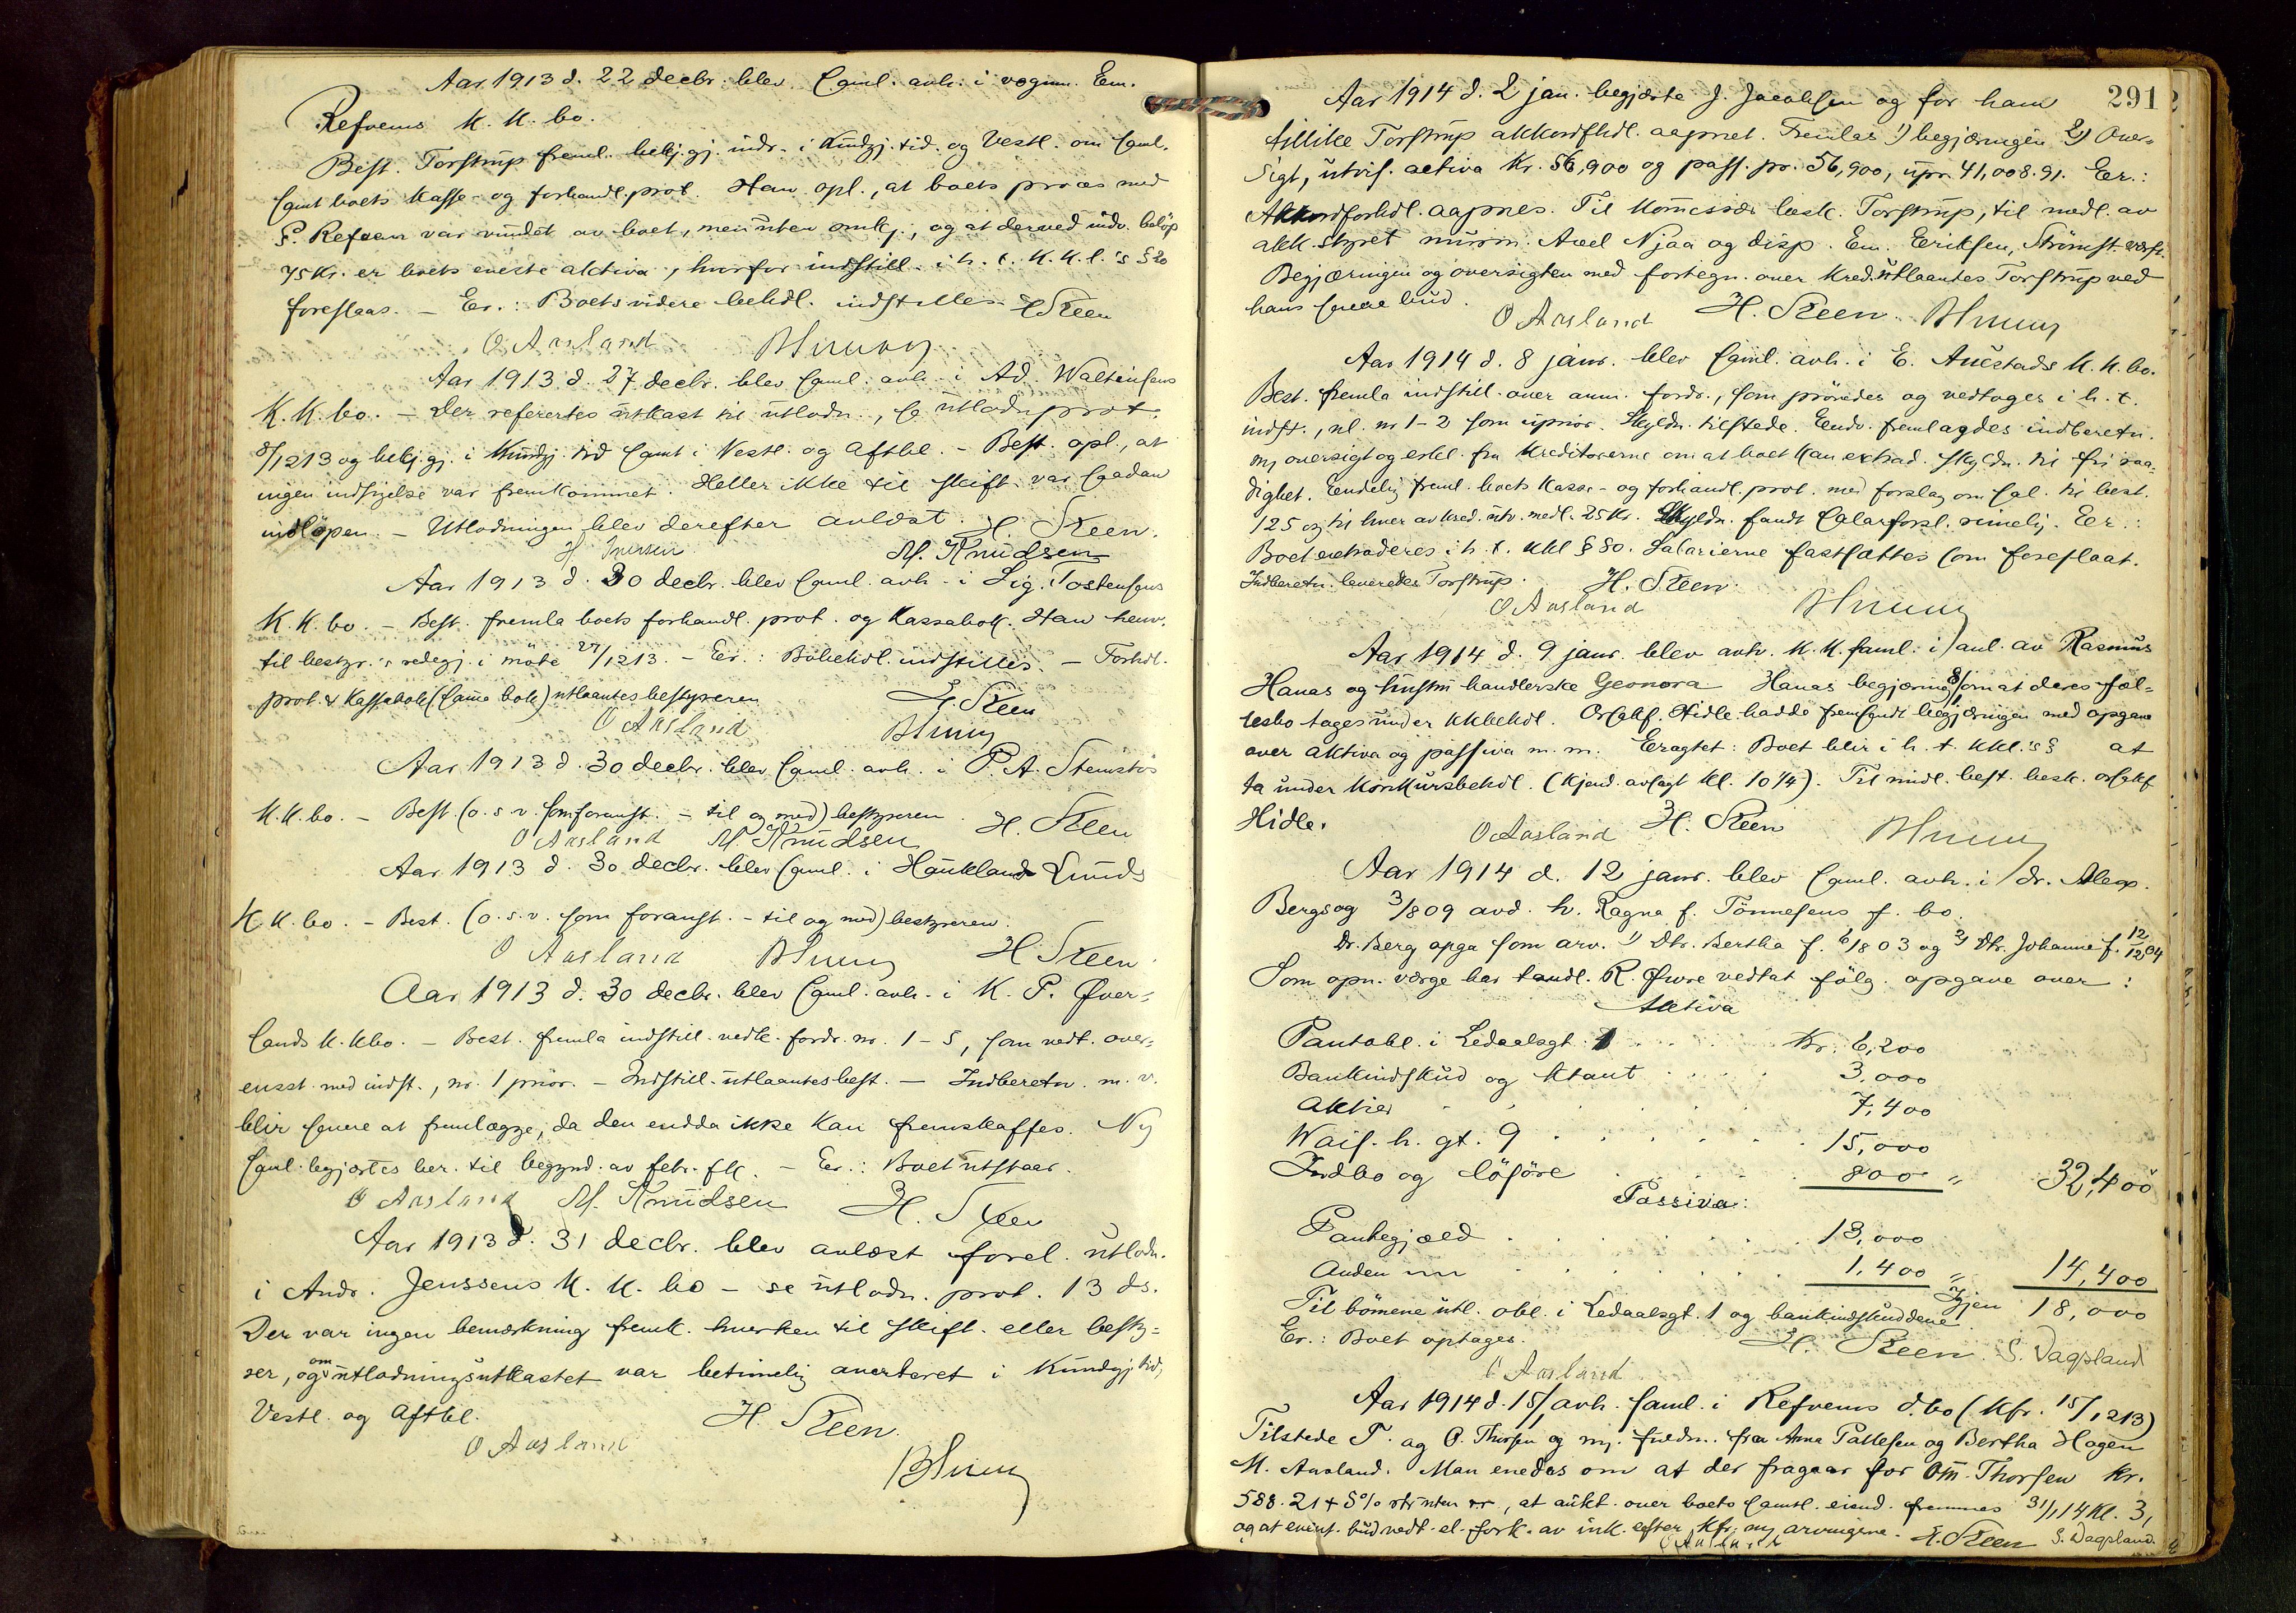 Aar 1913 d. 22 decbr. blev saml. avh. i vognm. Em.
Refvems K. K. bo.
Best. Torstrup freml. bekj.gj. indr. i Kundgj. tid. og Vestl. om saml.
samt boets Kasse- og forhandl. prot. Han opl., at boets proces med
P. Refvem var vundet av boet, men uten omk., og at derved indv. beløp
75 Kr. er boets eneste aktiva, hvorfor indstill. i h. t. K. K. l.'s § 20
foreslaas. – Er.: Boets videre behdl. indstilles. H Steen
O Aasland
Aar 1913 d. 27 decbr. blev saml. avh. i Ad. Waltinsens
K. K. bo. – Der referertes utkast til utlodn., se utlodn prot.
8/1213 og bekj.gj. i Kundgj. tid samt i Vestl. og Aftbl. – Best. opl., at
ingen indsigelse var fremkommet. Heller ikke til skift. var saadan
indløpen. – Utlodningen blev derefter avlæst. H. Steen.
H Iversen M. Knudsen
Aar 1913 d. 30 decbr. blev saml. avh. i Sig. Tostensens
K. K. bo. – Best. fremla boets forhandl. prot. og Kassabok. Han henv.
til bestyr.'s redegj. i møte 27/1213. – Er.: Bobehdl. indstilles. – Forhdl.
prot. & Kassabok (samme bok) utlaantes bestyreren H. Steen
O Aasland
Aar 1913 d. 30 decbr. blev saml. avh. i P. A. Stensløs
K. K. bo. – Best. (o. s. v. som foranst. – til og med) bestyreren. H. Steen
O Aasland M. Knudsen
Aar 1913 d. 30 decbr. blev saml. i Haukland Lunds
K. K. bo. – Best. (o. s. v. som foranst. – til og med) bestyreren.
O Aasland H. Steen
Aar 1913 d. 30 decbr. blev saml. avh. i K. P. Øver-
lands K. Kbo. – Best. fremla indstill. vedk. fordr. nr. 1–5, som vedt. over-
ensst. med indst., nr. 1 prior. – Indstill. utlaantes best. – Indberetn. m. v.
blir senere at fremlægge, da den endda ikke kan fremskaffes. Ny
saml. begjærtes ber. til begynd. av febr. fk. – Er.: Boet utstaar.
O Aasland M. Knudsen H. Steen
Aar 1913 d. 31 decbr. blev avlæst forel. utlodn.
i Andr. Jenssens K. K. bo – se utlodn. prot. 13 ds.
Der var ingen bemærkning fremk. hverken til skift. eller besty-
rer, og om utlodningsutkastet var betimelig averteret i Kundgj. tid,
Vestl. og Aftbl. H. Steen.
O Aasland
291
Aar 1914 d. 2 jan. begjærte J. Jacobsen og for ham
tillike Torstrup akkordfhdl. aapnet. Fremlas 1) begjæringen 2) Over-
sigt, utvis. activa Kr. 56,900 og pass. pr. 56,900, upr. 41,008.91. Er.:
Akkordforhdl. aapnes. Til Kommissær besk. Torstrup, til medl. av
akk. styret murm. Axel Njaa og disp. Em. Eriksen, Strømst. værft.
Begjæringen og oversigten med fortegn. over Kred. utlaantes Torstrup ved
hans sendebud. O Aasland H. Steen.
Aar 1914 d. 8 janr. blev saml. avh. i E. Auestads K. K. bo.
Best. fremla indstill. over anm. fordr., som prøvedes og vedtoges i h. t.
indst., nl. nr 1-2 som uprior. Skyldn. tilstede. Endv. fremlagdes indberetn.
m/ oversigt og erkl. fra Kreditorerne om at boet kan extrad. skyldn. til fri raa-
dighet. Endelig freml. boets kasse- og forhandl. prot. med forslag om sal. til best.
125 og til hver av kred. utv. medl. 25 Kr. Skyldn. fandt salærforsl. rimelig. Er.:
Boet extraderes i h. t. KKl § 80. Salarierne fastsættes som foreslaat.
Indberetn. leveredes Torstrup. H. Steen
O Aasland
Aar 1914 d. 9 janr. blev avh. K. K. saml. i anl. av Rasmus
Hanas og hustru handlerske Geonora Hanas begjæring 8/1 om at deres fæl-
lesbo tages under KKbehdl. Orsakf. Hidle hadde fremsendt begjæringen med opgave
over aktiva og passiva m. m. Eragtet: Boet blir i h. t. KKl.'s § at
ta under Konkursbehdl. (Kjend. avsagt kl. 10 1/4). Til midl. best. besk. orsakf
Hidle.
O Aasland H. Steen
Aar 1914 d. 12 janr. blev saml. avh. i dr. Alex.
Bergs og 3/8 09 avd. h. Ragna f. Tønnesens f. bo.
Dr. Berg opga som arv. 1) Dtr. Bertha f. 6/8 03 og 2) Dtr. Johanne f. 12/12 04
Som opn. værge har tandl. R. Øwre vedtat følg. opgave over:
Aktiva
Pantobl. i Ledaalsgt. 1 . . . Kr. 6,200
Bankindskud og ktant . . . . 3,000
Aktier . . . . . 7,400
Wais. h. gt. 9 . . . . . . 15,000
Indbo og løsøre . . . . 800 " 32,400
Passiva:
Pantegjæld . . . . . . 13,000
Anden " " . . . . . . 1,400 " 14,400
Igjen 18,000
Til børnene utl. obl. i Ledaalsgt. 1 og bankindskuddene
Er.: Boet optages. H. Steen. S. Dagsland
O Aasland
Aar 1914 d. 15/1 avh. saml. i Refvems d.bo (Kfr. 15/1213)
Tilstede T. og O. Thorsen og m/. fuldm. fra Anna Pallesen og Bertha Hogen
M. Aasland. Man enedes om at der fragaar for Om. Thorsen Kr.
588.21 + 5% renter, at aukt. over boets samtl. eiend. fremmes 31/1 14 Kl. 3,
og at event. bud vedt. el. fork. av ink. efter kfr. m/ arvingerne. H. Steen S. Dagsland.
O Aasland